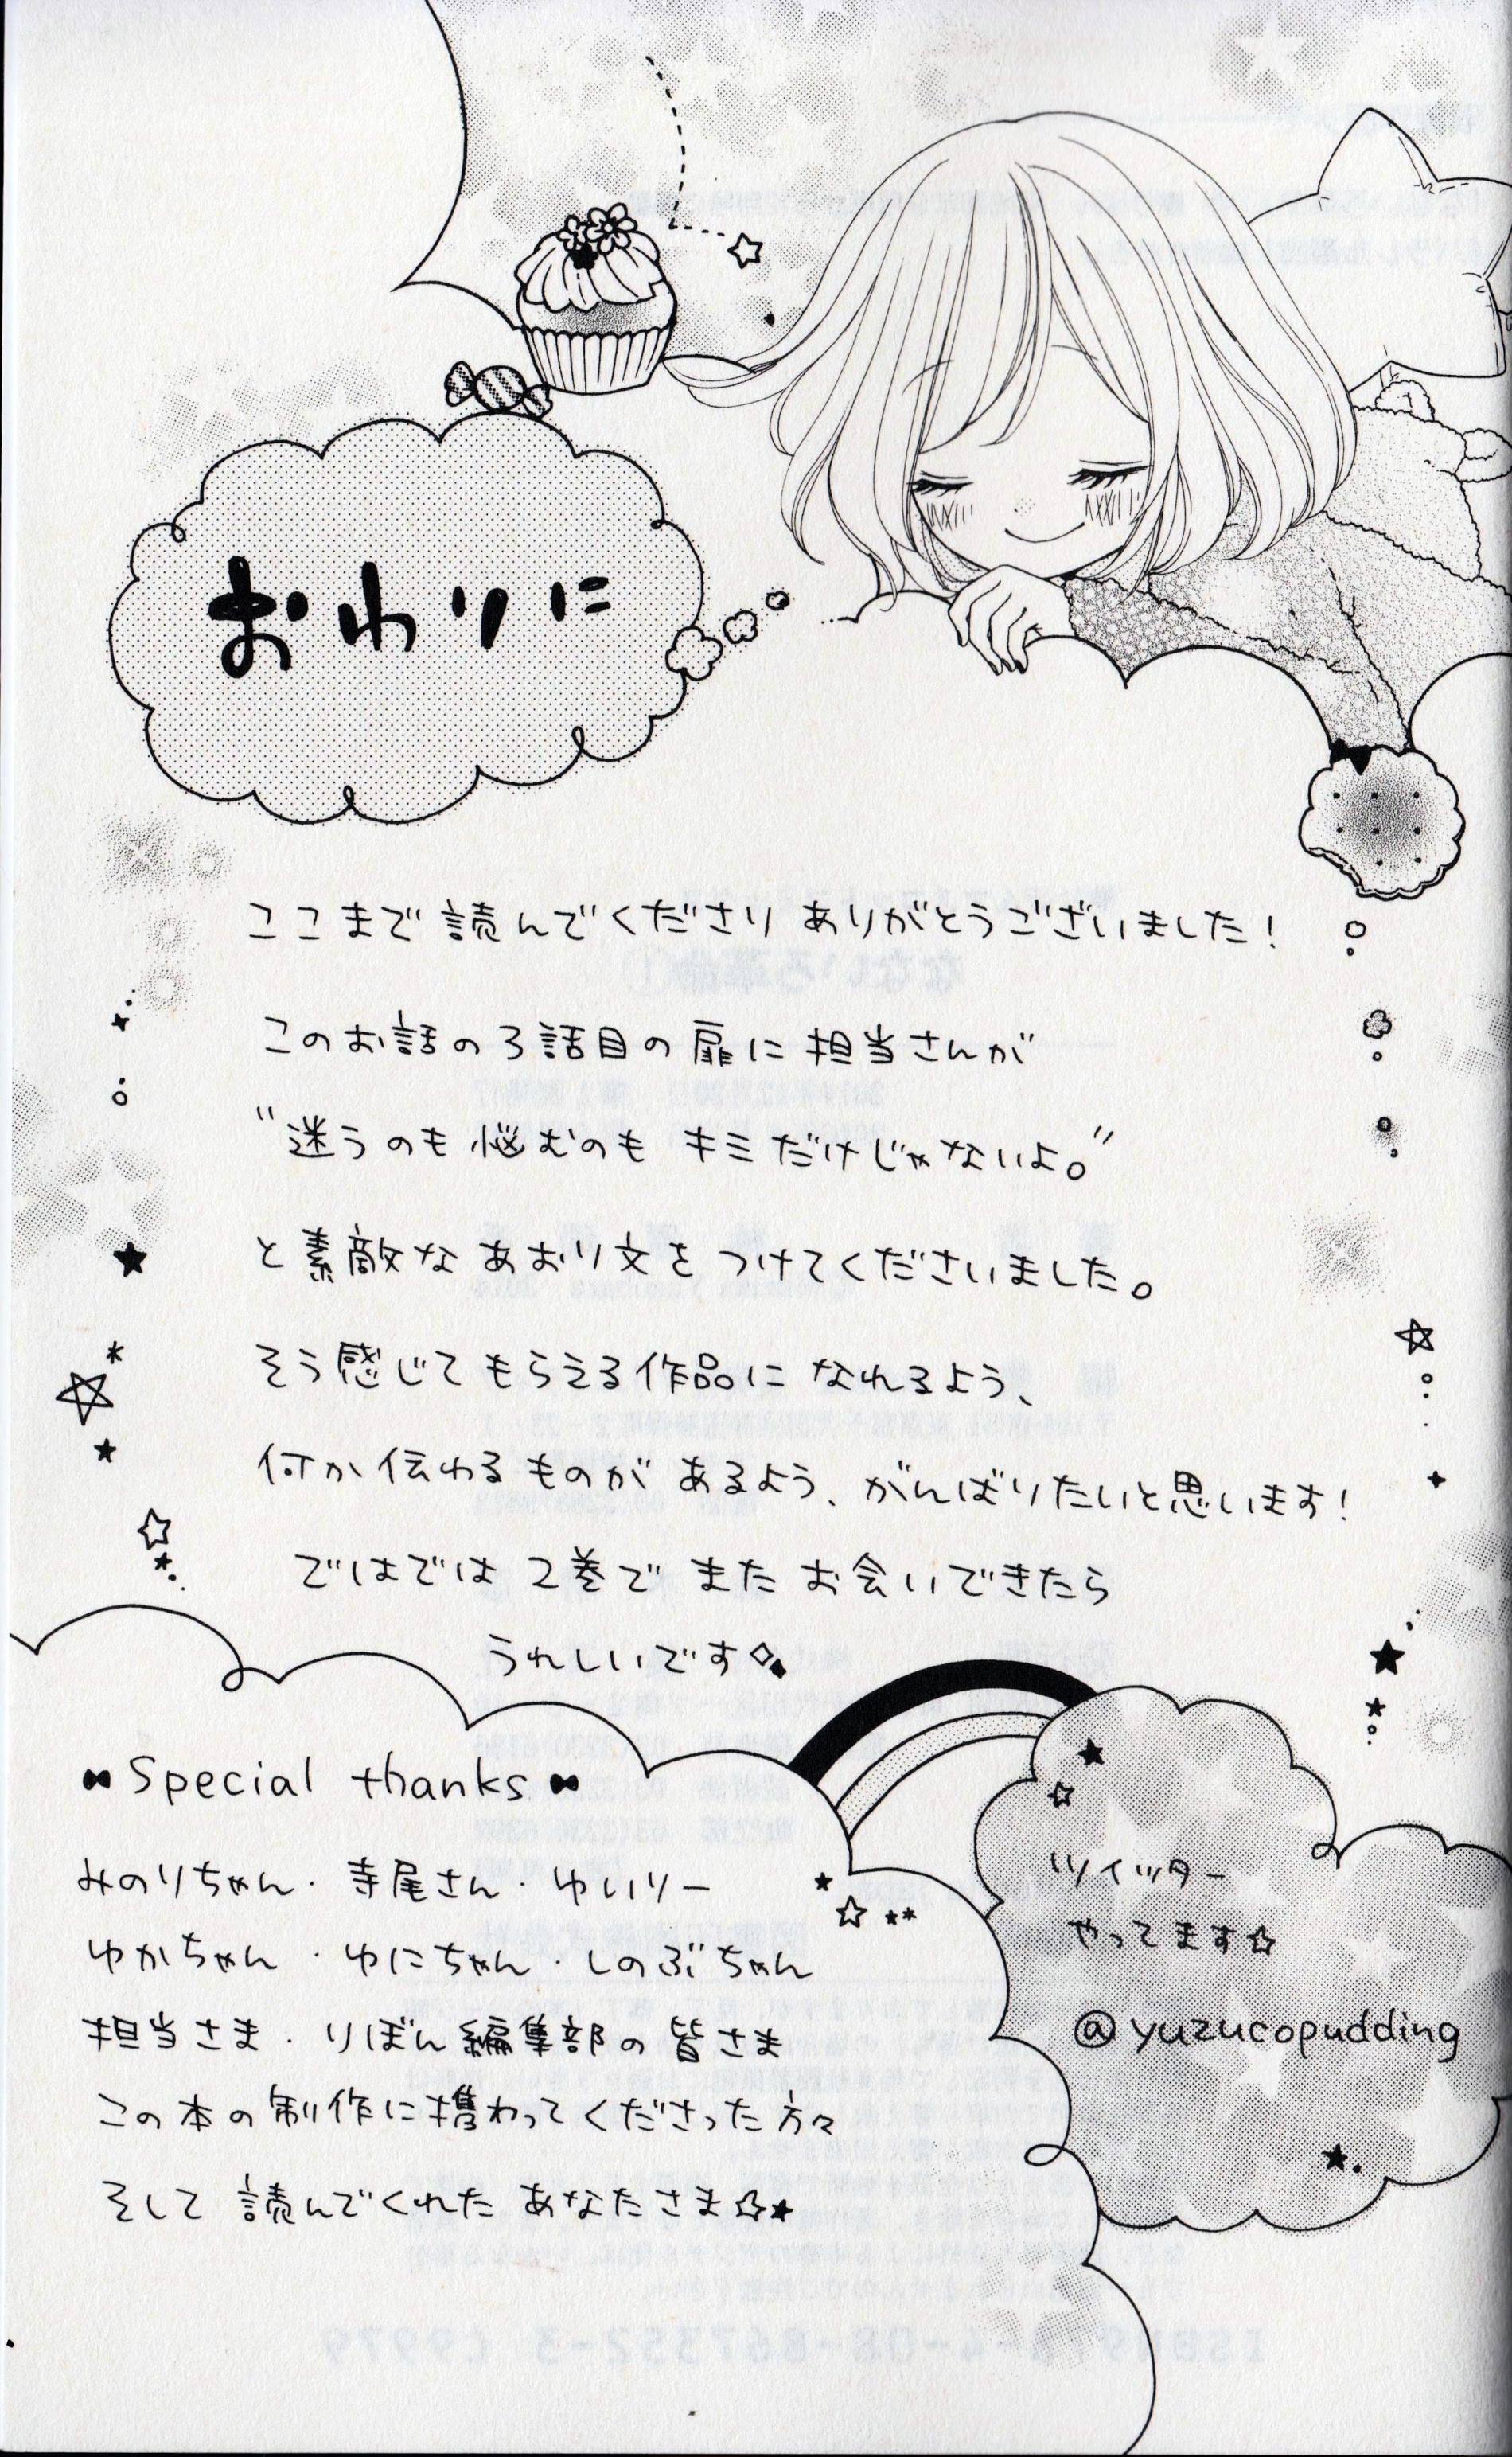 おわりに
ここまで読んでくださり ありがとうございました!
このお話の3話目の扉に担当さんが
"迷うのも悩むのも キミだけじゃないよ。"
と素敵な あおり文を つけてくださいました。
そう感じて もらえる作品に なれるよう、
何か伝わる ものが あるよう、がんばりたいと思います!
ではでは 2巻で また お会いできたら
うれしいです
Special thanks
みのりちゃん・寺尾さん・ゆいりー
ゆかちゃん・ゆにちゃん・しのぶちゃん
担当さま・りぼん編集部の皆さま
この本の制作に携わってくださった方々
そして 読んでくれた あなたさま☆★
ツイッター
やってます☆
@yuzucopudding